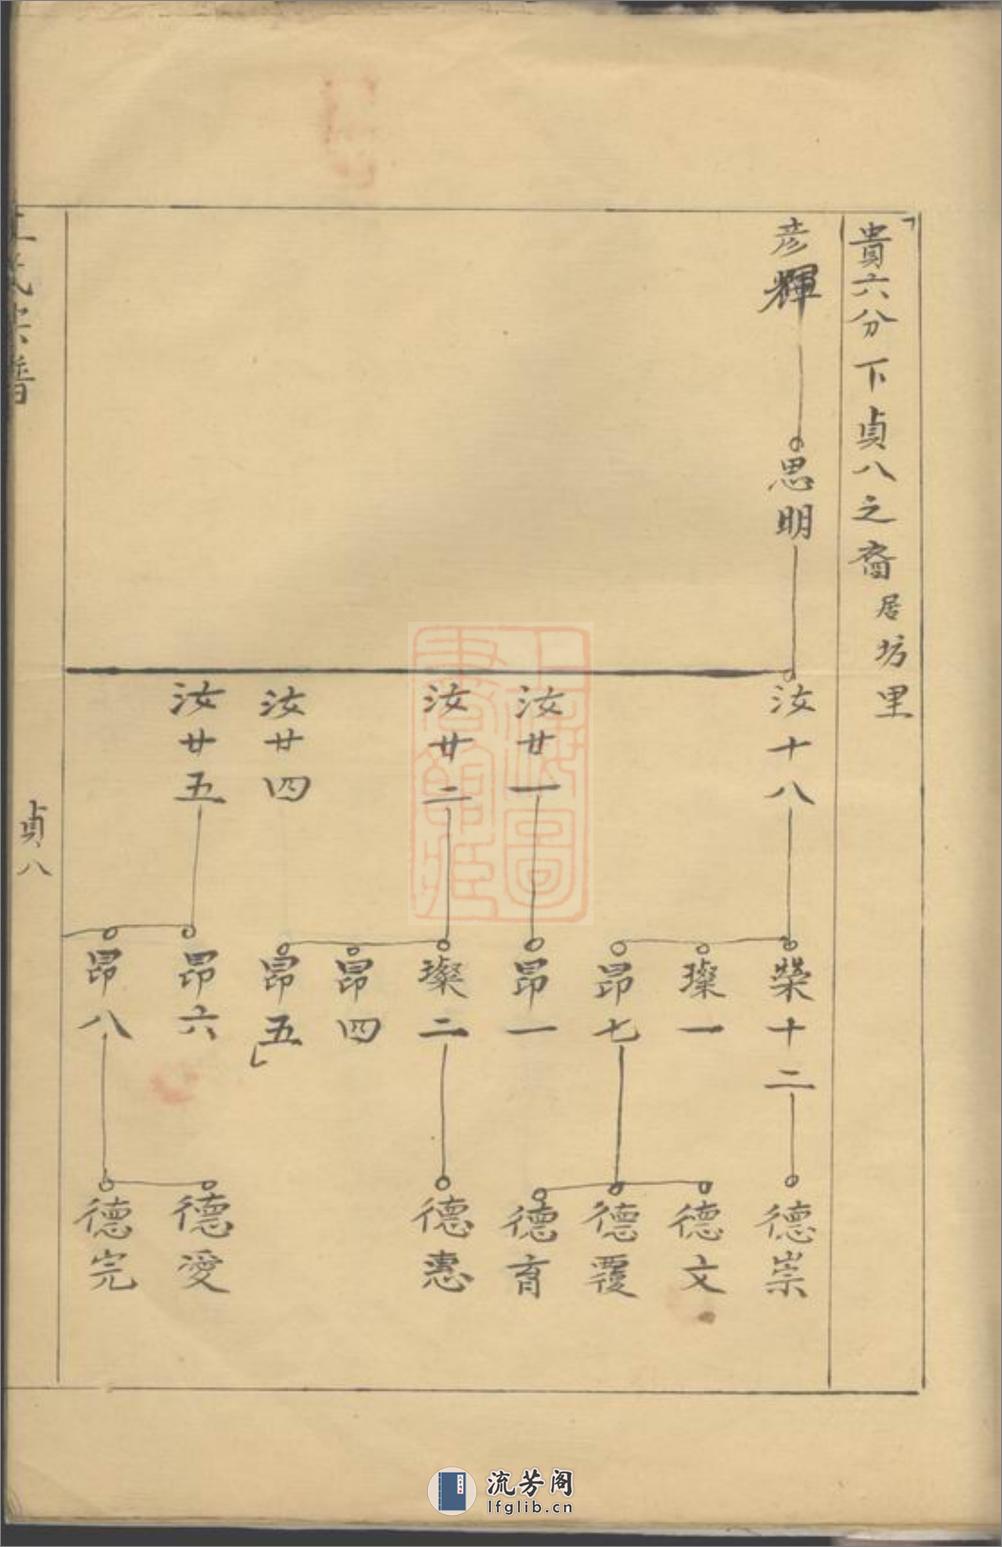 貴六分下貞八之裔居坊里
彦輝
思明
汝十八
汝廿一
汝廿二
汝廿四
汝廿五
榮十二
璨一
昂七
昂一
璨二
昂四
昂五
昂六
昂八
德崇
德文
德覆
德育
德惠
德愛
德完
氏宗譜
貞八
上海圖書館藏
流芳阁
lfglib.cn